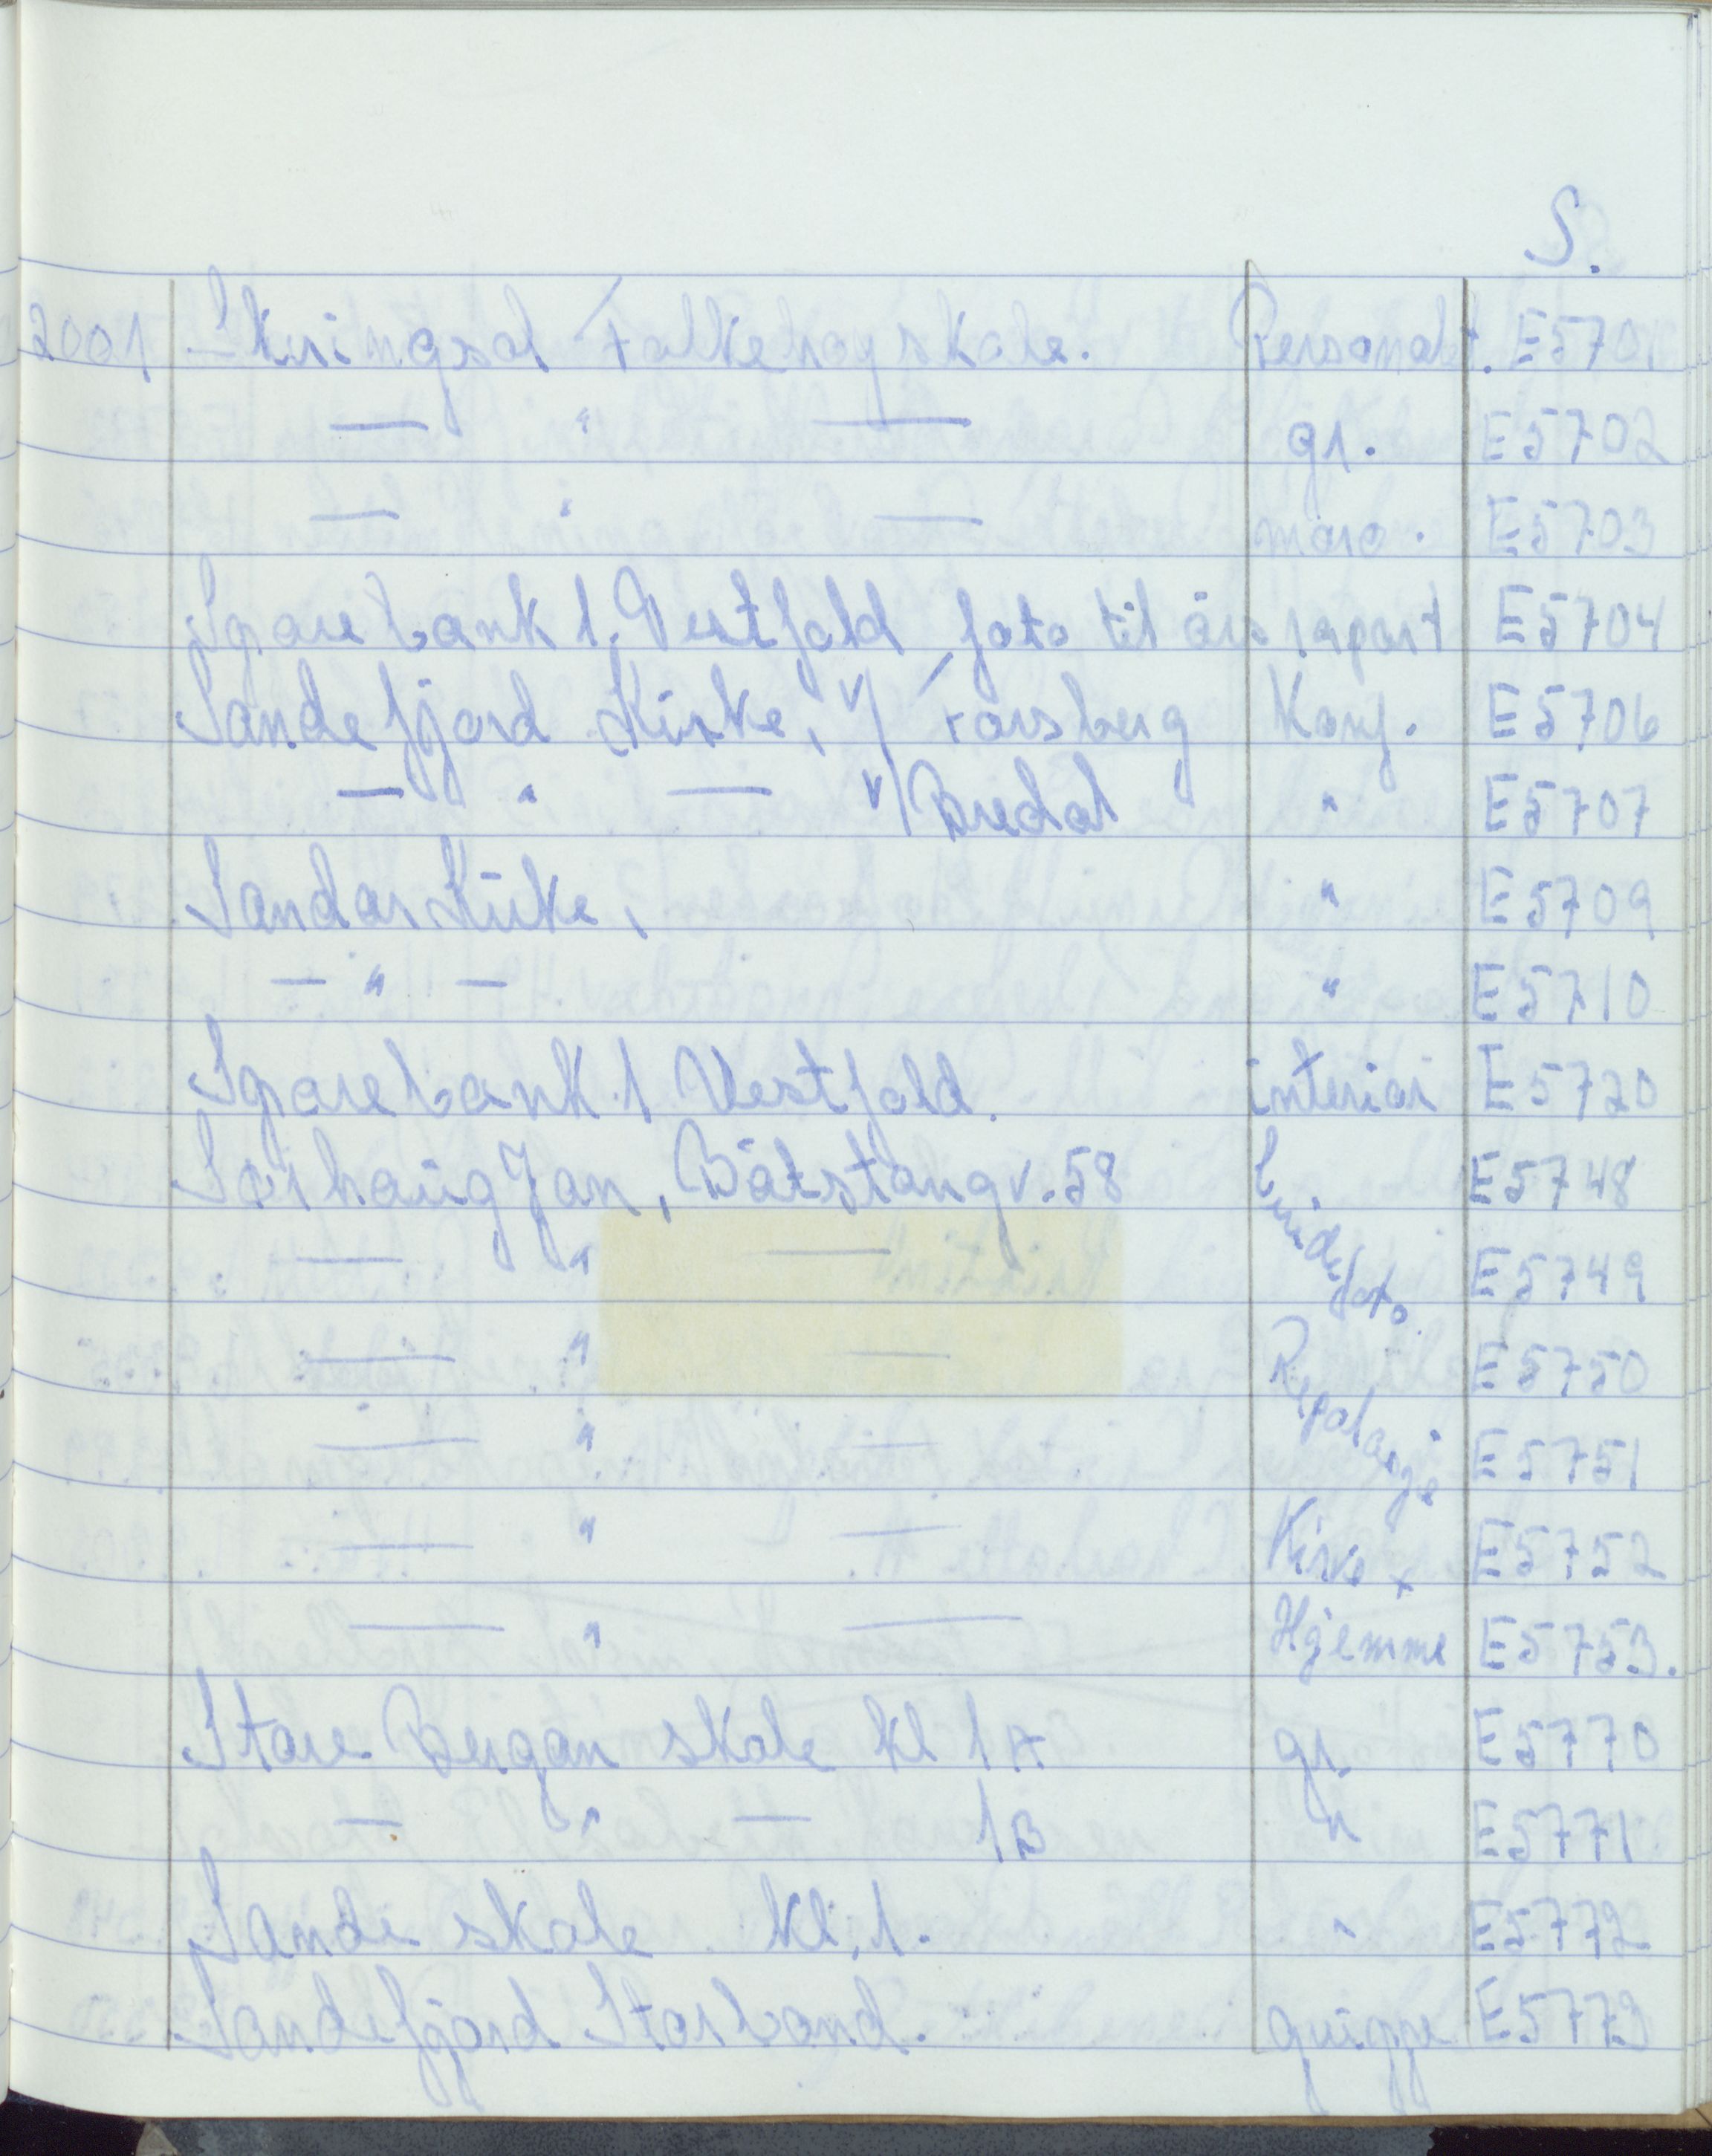 S.
2001 Skiringsal Folkehøyskole. Personalet. E5701
— " — gr. E5702
— " — E5703
Sparebank 1, Vestfold foto til års rapport E5704
Sandefjord Kirke, v/ Forsberg Konf. E5706
— " — v/ Bredal " E5707
Sandar Kirke, " E5709
— " — " E5710
Sparebank 1 Vestfold. interiør E5720
Sørhaug Jan, Båtstangv. 58 brudefoto. E5748
— " — E5749
— " — Reportasje E5750
— " — E5751
— " — Kirke + E5752
— " — Hjemme E5753.
Store Bergan skole kl 1A gr. E5770
— " — 1B " E5771
Sande skole kl. 1. " E5772
Sandefjord Storband. gruppe E5773